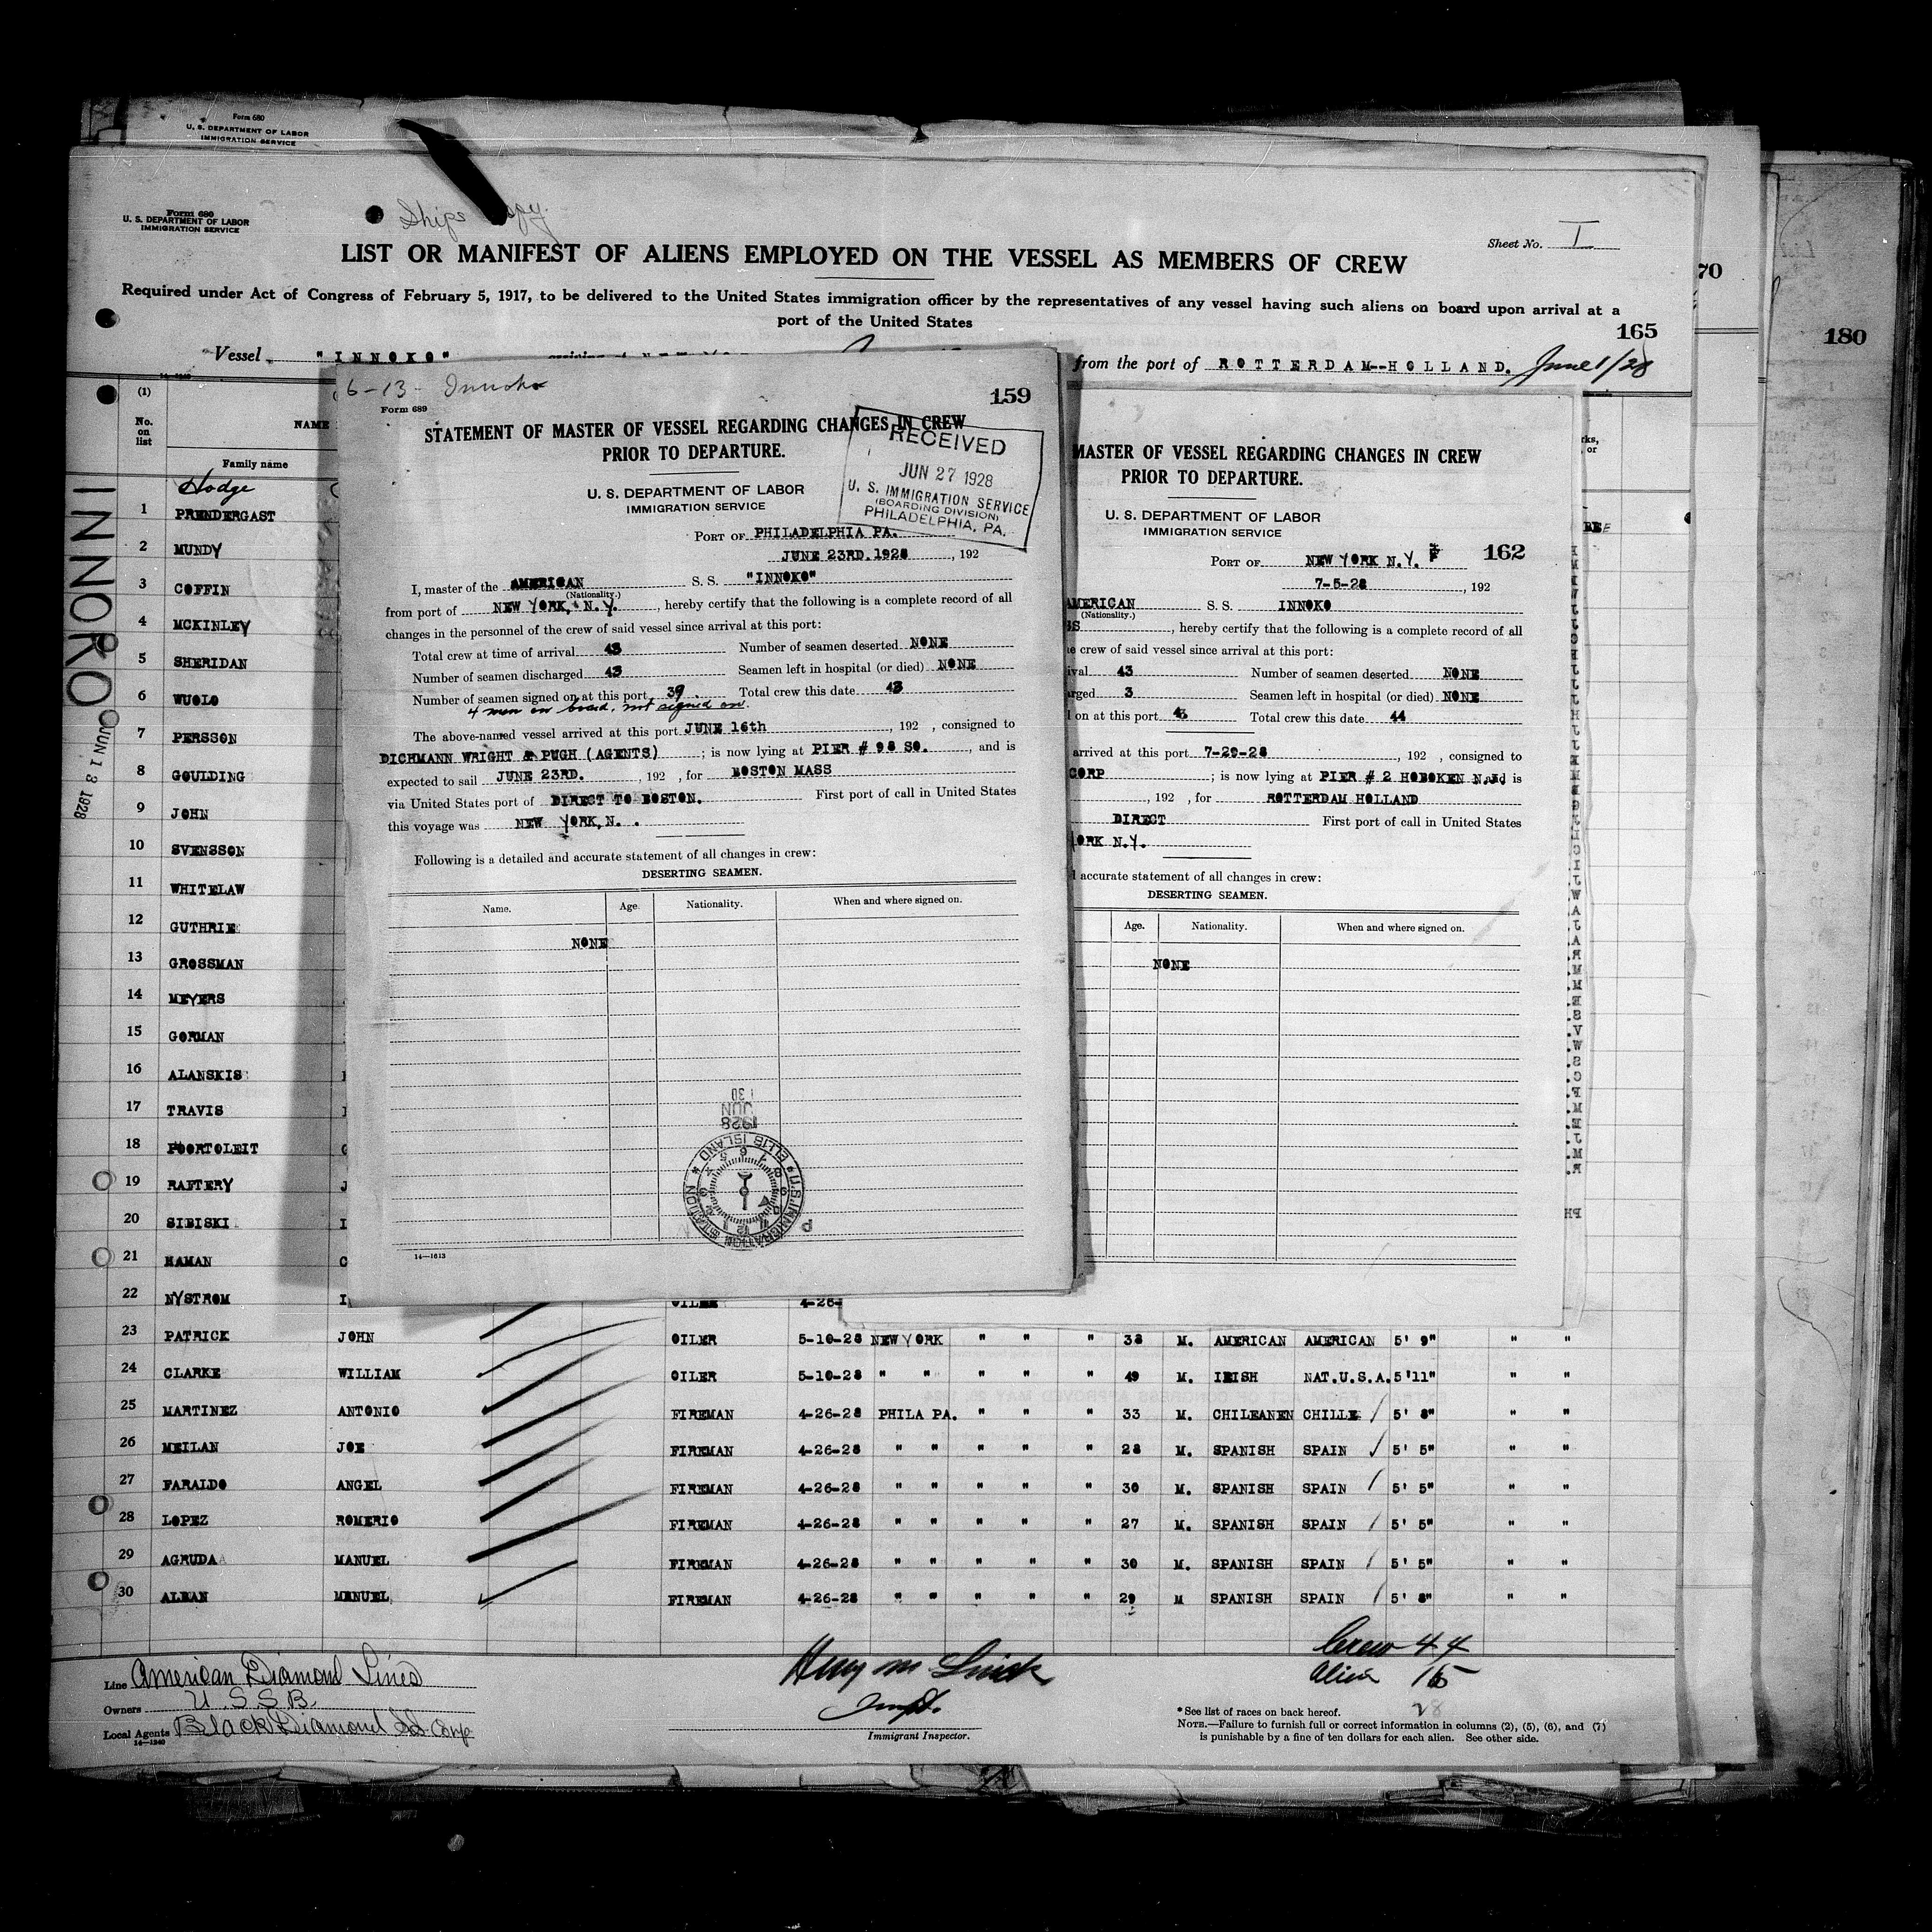 Form 680
U. S. DEPARTMENT OF LABOR
IMMIGRATION SERVICE
Form 680
U. S. DEPARTMENT OF LABOR
IMMIGRATION SERVICE
Ships Copy
Sheet No. I
LIST OR MANIFEST OF ALIENS EMPLOYED ON THE VESSEL AS MEMBERS OF CREW
Required under Act of Congress of February 5, 1917, to be delivered to the United States immigration officer by the representatives of any vessel having such aliens on board upon arrival at a
port of the United States
165
70
180
Vessel "INNOKO"
from the port of ROTTERDAM--HOLLAND. June 1/28
(1)
No. on list
NAME
Family name
INNOKO
JUN 13 1928
Hodge
1 PRENDERGAST
2 MUNDY
3 COFFIN
4 MCKINLEY
5 SHERIDAN
6 WUOLO
7 PERSSON
8 GOULDING
9 JOHN
10 SVENSSON
11 WHITELAW
12 GUTHRIE
13 GROSSMAN
14 MEYERS
15 GORMAN
16 ALANSKIS
17 TRAVIS
18 POORTOLEIT
19 RAFTERY
20 SIBISKI
21 HAMAN
22 NYSTROM OILER 4-26-
23 PATRICK JOHN OILER 5-10-28 NEW YORK " " " 38 M. AMERICAN AMERICAN 5' 9" " "
24 CLARKE WILLIAM OILER 5-10-28 " " " " " 49 M. IRISH NAT.U.S.A. 5'11" " "
25 MARTINEZ ANTONIO FIREMAN 4-26-28 PHILA PA. " " " 33 M. CHILEANEN CHILLE / 5' 8" " "
26 MEILAN JOE FIREMAN 4-26-28 " " " " " 28 M. SPANISH SPAIN ✓ 5' 5" " "
27 FARALDO ANGEL FIREMAN 4-26-28 " " " " " 30 M. SPANISH SPAIN / 5' 5" " "
28 LOPEZ ROMERIO FIREMAN 4-26-28 " " " " " 27 M. SPANISH SPAIN / 5' 5" " "
29 AGRUDA MANUEL FIREMAN 4-26-28 " " " " " 30 M. SPANISH SPAIN / 5' 5" " "
30 ALBAN MENUEL FIREMAN 4-26-28 " " " " " 29 M SPANISH SPAIN / 5' 8" " "
Crew 44
Alien 16
28
Line American Diamond Lines
Owners U.S.S.B.
Local Agents Black Diamond SS Corp
14—1240
Immigrant Inspector.
* See list of races on back hereof.
NOTE.—Failure to furnish full or correct information in columns (2), (5), (6), and (7)
is punishable by a fine of ten dollars for each alien. See other side.
6-13- Innoko
159
Form 689
STATEMENT OF MASTER OF VESSEL REGARDING CHANGES IN CREW
PRIOR TO DEPARTURE.
RECEIVED
JUN 27 1928
U. S. IMMIGRATION SERVICE
(BOARDING DIVISION)
PHILADELPHIA, PA.
U. S. DEPARTMENT OF LABOR
IMMIGRATION SERVICE
PORT OF PHILADELPHIA PA.
JUNE 23RD.1928, 192
I, master of the AMERICAN S. S. "INNOKO"
(Nationality.)
from port of NEW YORK, N.Y., hereby certify that the following is a complete record of all
changes in the personnel of the crew of said vessel since arrival at this port:
Total crew at time of arrival 43 Number of seamen deserted NONE
Number of seamen discharged 43 Seamen left in hospital (or died) NONE
Number of seamen signed on at this port 39. Total crew this date 43
4 men on board, not signed on.
The above-named vessel arrived at this port JUNE 16th, 192 , consigned to
DICHMANN WRIGHT & PUGH (AGENTS); is now lying at PIER # 98 SO., and is
expected to sail JUNE 23RD., 192 , for BOSTON MASS
via United States port of DIRECT TO BOSTON. First port of call in United States
this voyage was NEW YORK, N. .
Following is a detailed and accurate statement of all changes in crew:
DESERTING SEAMEN.
Name. Age. Nationality. When and where signed on.
NONE
1928
JUN
30
U.S. IMMIGRATION STATION ELLIS ISLAND
14—1613
MASTER OF VESSEL REGARDING CHANGES IN CREW
PRIOR TO DEPARTURE.
U. S. DEPARTMENT OF LABOR
IMMIGRATION SERVICE
162
PORT OF NEW YORK N.Y.
7-5-28, 192
AMERICAN S. S. INNOKO
(Nationality.)
, hereby certify that the following is a complete record of all
crew of said vessel since arrival at this port:
43 Number of seamen deserted NONE
3 Seamen left in hospital (or died) NONE
on at this port 4 Total crew this date 44
arrived at this port 7-29-28, 192 , consigned to
CORP; is now lying at PIER # 2 HOBOKEN N.J. and is
, 192 , for ROTTERDAM HOLLAND
DIRECT First port of call in United States
YORK N.Y.
accurate statement of all changes in crew:
DESERTING SEAMEN.
Age. Nationality. When and where signed on.
NONE